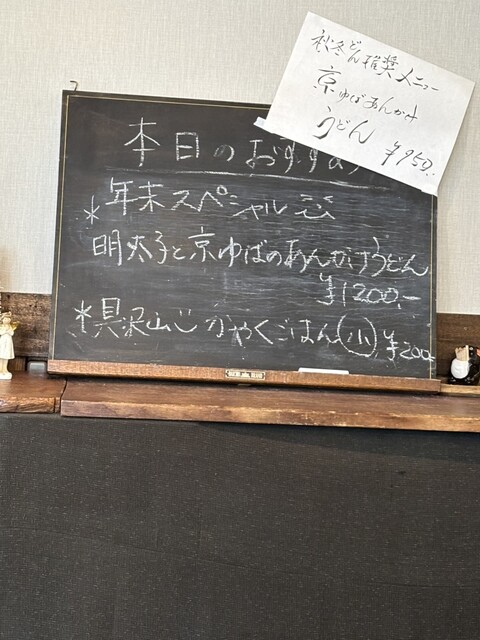 秋冬どん推奨メニュー
京ゆばあんかけ
うどん ¥950.
本日のおすすめ
*年末スペシャル
明太子と京ゆばのあんかけうどん
¥1200.-
*具沢山 かやくごはん(小) ¥200-